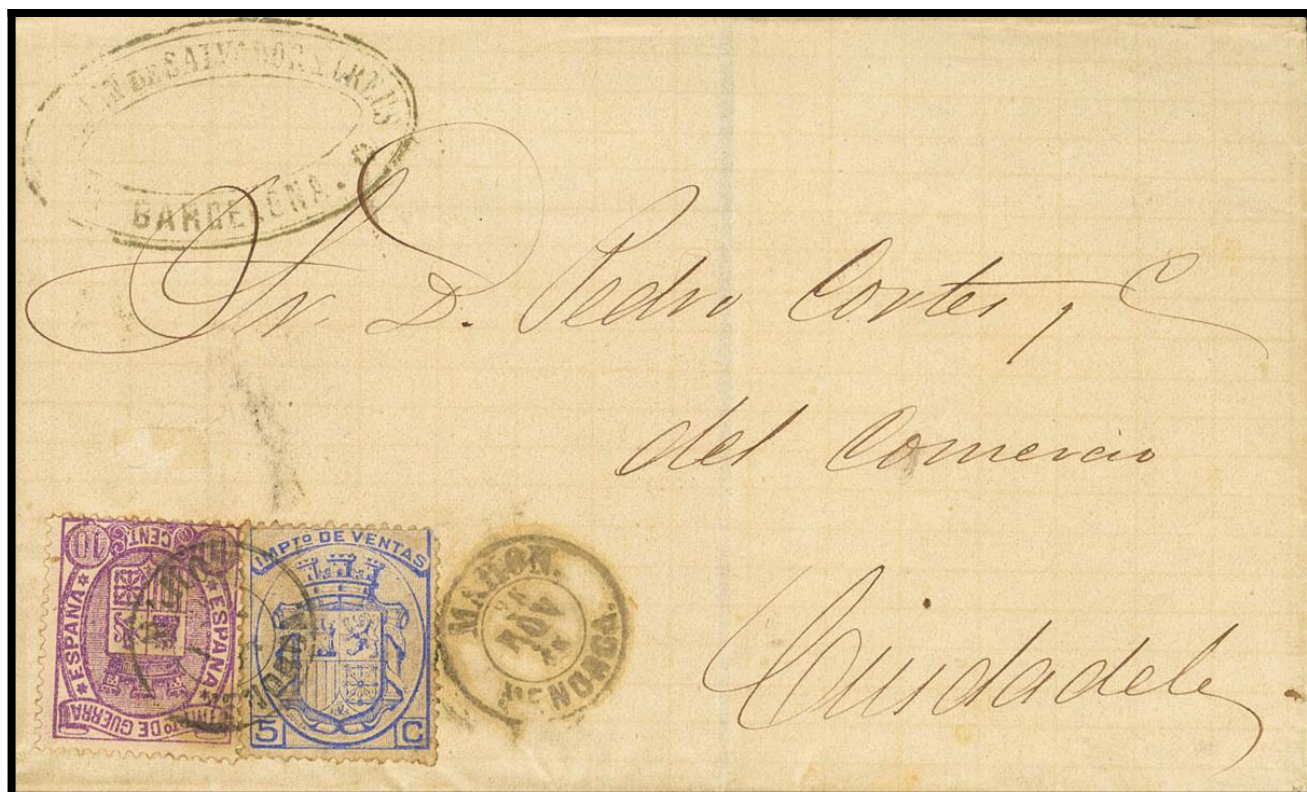 DE SALVADOR
BARCELONA.
Sr. D. Pedro Cortes y C
del Comercio
Ciudadela
10 CENT.
* ESPAÑA *
* ESPAÑA *
IMPTO DE GUERRA
IMPTO DE VENTAS
5 C
MAHON.
MENORCA.
MAHON.
MENORCA.